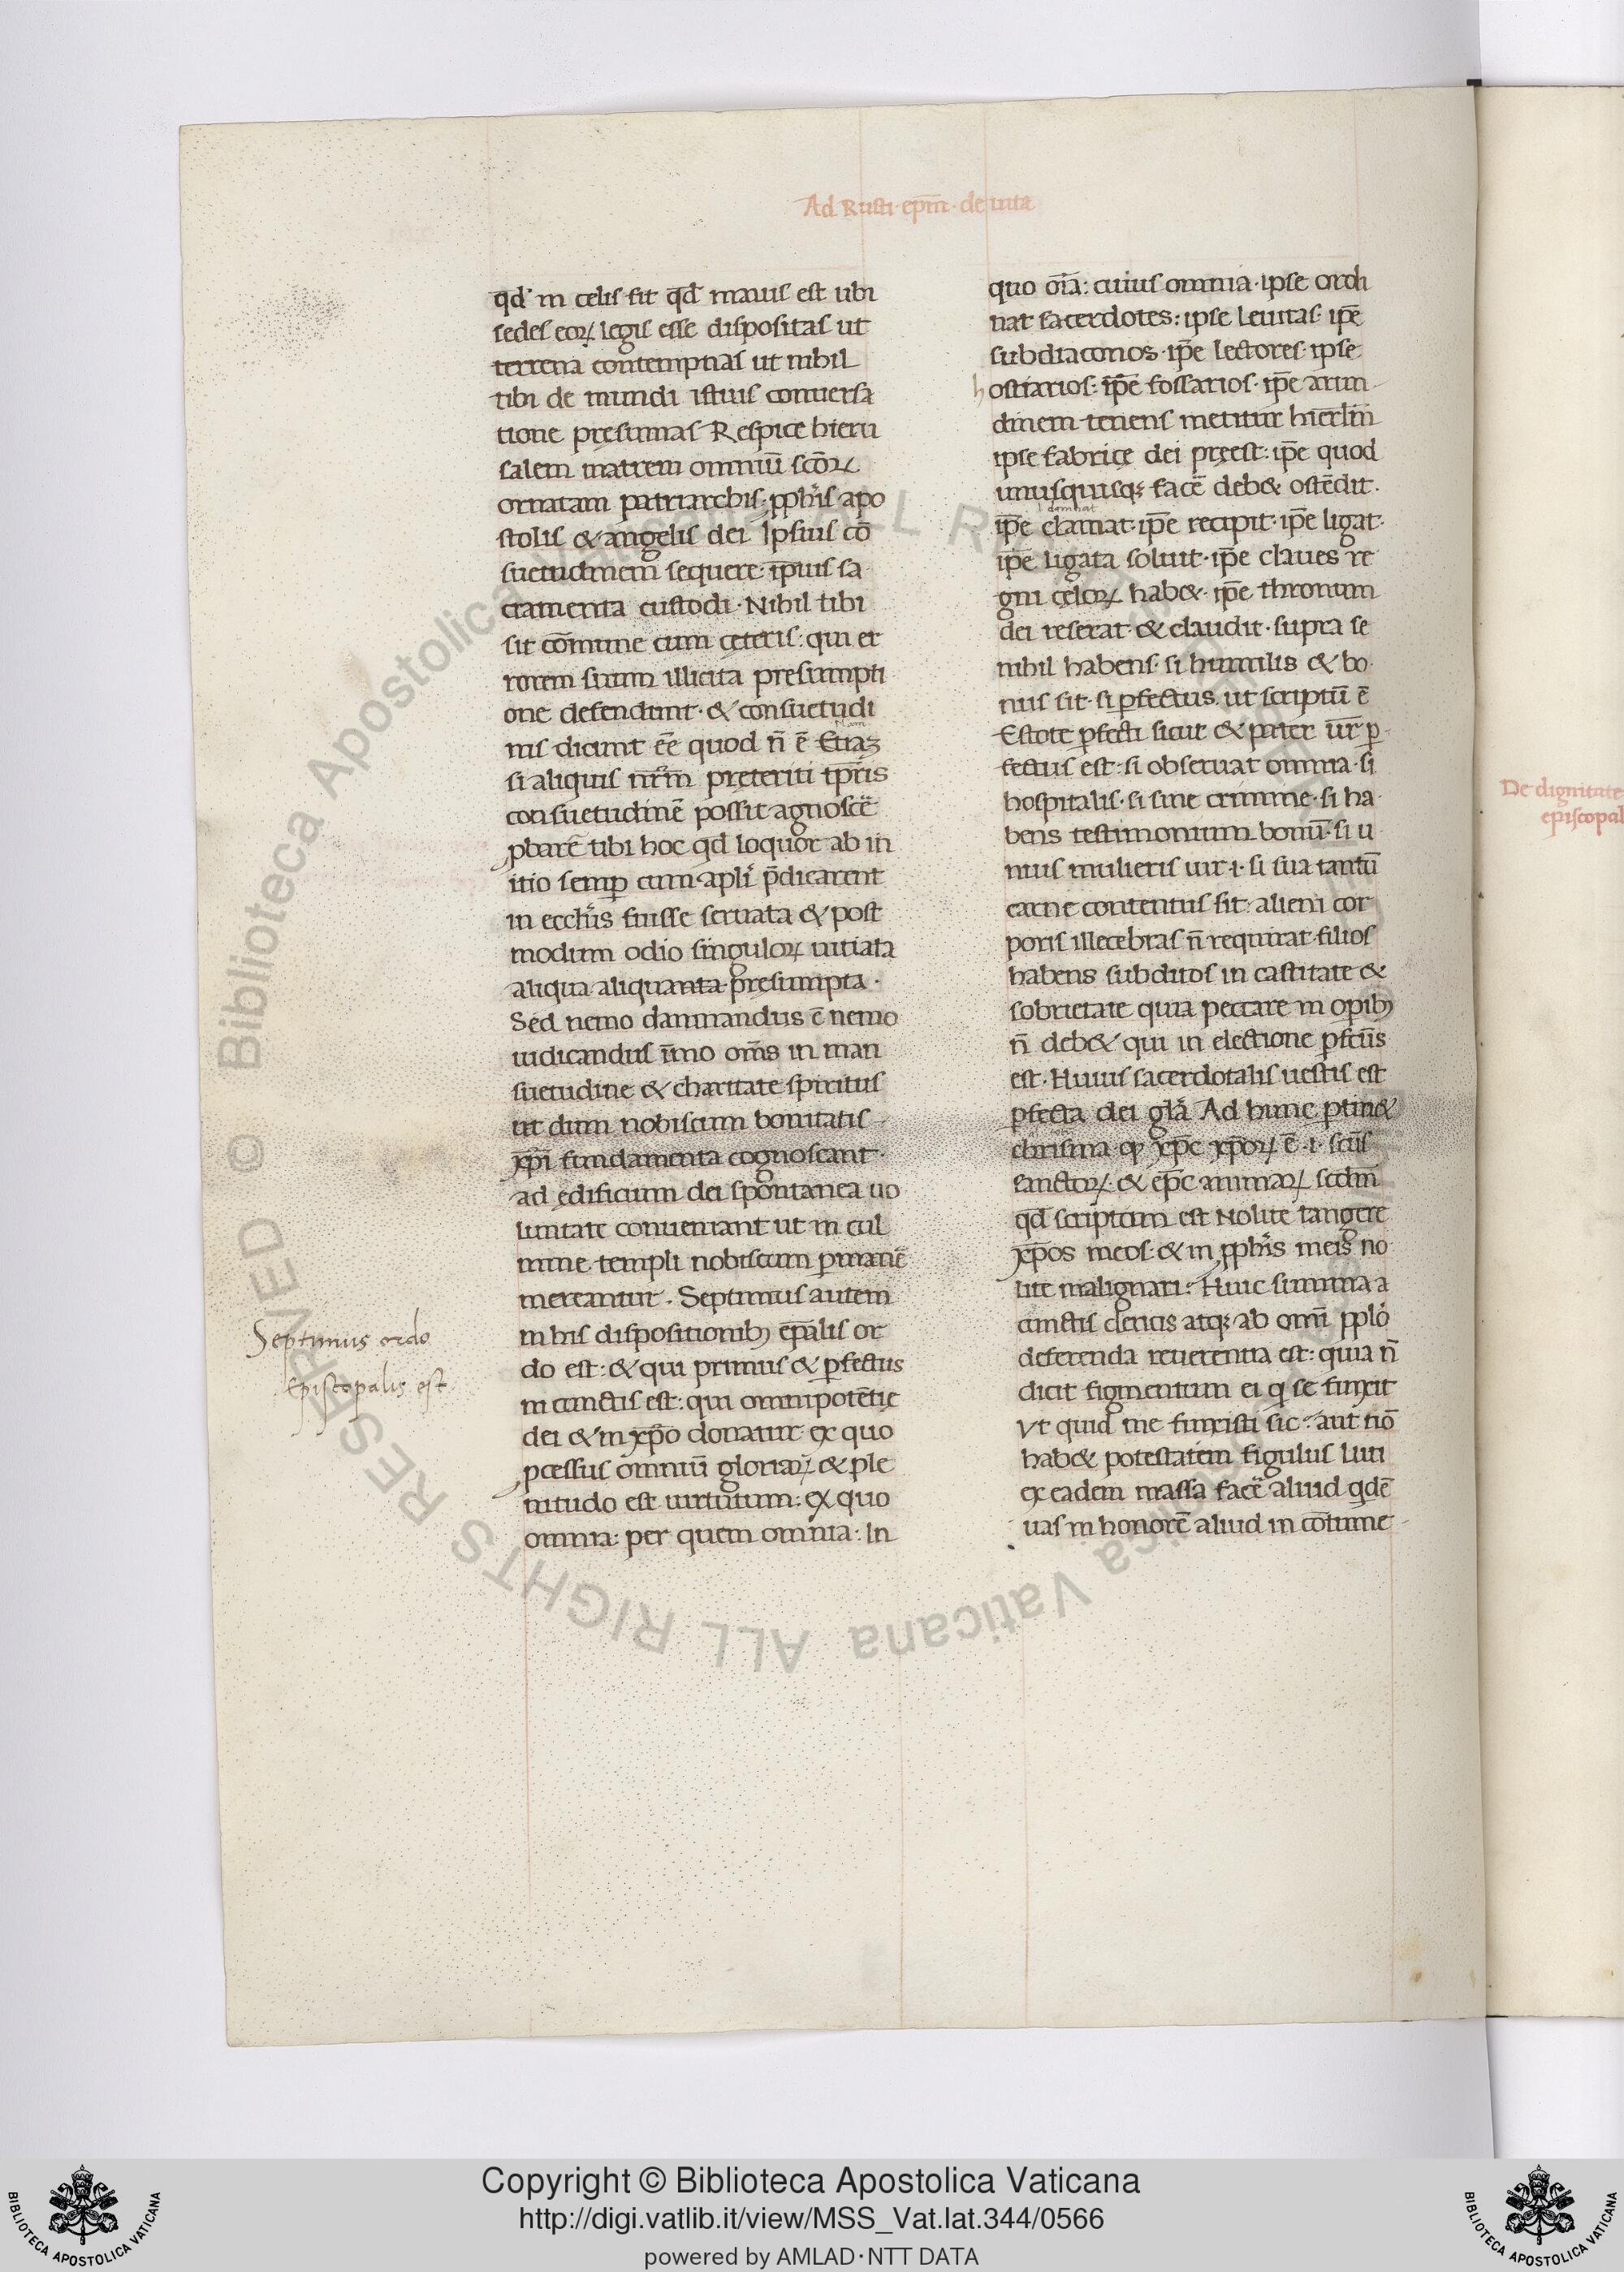 Ad Rusti·ep̄m̄·de uita
q̄d in celis fit q̄d maius est ubi
sedes eoꝝ legis esse dispositas ut
terrena contempnas ut nihil
tibi de mundi istius conuersa
tione presumas Respice hieru
salem matrem omniū sc̄oꝝ
ornatam patriarchis·ꝓphis apo
stolis & angelis dei Ipsius cō
suetudinem sequere·ip̄ius sa
cramenta custodi·Nihil tibi
sit cōmune cum ceteris: qui er
rorem suum illicita presumpti
one defendunt·& consuetudi
nis dicunt ēē quod n̄ ē Etiaꝫ
Nam
si aliquis nr̄m preteriti tp̄ris
consuetudinē possit agnoscē
ꝓbarē tibi hoc q̄d loquor ab in
itio semꝑ cum apl̄i p̄dicarent
in eccl̄iis fuisse seruata & post
modum odio singuloꝝ uitiata
aliqua aliquanta presumpta·
Sed nemo damnandus ē nemo
iudicandus īmo om̄s in man
suetudine & charitate spiritus
ut dum nobiscum bonitatis
xp̄i fundamenta cognoscant·
ad edificium dei spontanea uo
luntate conueniant ut in cul
mine templi nobiscum ꝑmanē
mereantur. Septimus autem
in his dispositionibꝫ ep̄alis or
do est: & qui primus & ꝑfectus
in cunctis est: qui omnipotētie
dei & in xp̄o donatur ex quo
ꝓcessus omniū gloriaꝝ & ple
nitudo est uirtutum: ex quo
omnia: per quem omnia: In
Septimus ordo
Episcopalis est.
quo oīa: cuius omnia·ipse ordi
nat sacerdotes: ipse leuitas·ip̄e
subdiaconos·ip̄e lectores·ipse
hostiarios: ip̄e fossarios·ip̄e arun
dinem tenens metitur hierl̄m
ipse fabrice dei preest: ip̄e quod
unusquisqꝫ facē deb& ostēdit.
l damnat
ip̄e clamat·ip̄e recipit·ip̄e ligat·
ip̄e ligata soluit·ip̄e claues re
gni celoꝝ hab&·ip̄e thronum
dei reserat·& claudit·supra se
nihil habens·si humilis & bo
nus sit·si ꝑfectus·ut scriptū ē
Estote ꝑfecti sicut & pater ur̄ ꝑ
fectus est: si obseruat omnia·si
hospitalis·si sine crimine·si ha
bens testimonium bonū·si u
nius mulieris uir·i·si sua tantū
carne contentus sit·alieni cor
poris illecebras n̄ requirat·filios
habens subditos in castitate &
sobrietate quia peccare in opibꝫ
n̄ deb& qui in electione ꝑfcūs
est·Huius sacerdotalis uestis est
ꝑfecta dei gl̄a Ad hunc ꝑtin&
chrisma qꝫ xp̄c xp̄oꝝ ē·i·sc̄us
sanctoꝝ·& ep̄c animaꝝ scdm̄
q̄d scriptum est Nolite tangere
xp̄os meos: & in ꝓphis meis no
lite malignari: Huic summa a
cunctis clericis atqꝫ ab omī pplo
deferenda reuerentia est: quia n̄
dicit figmentum ei q̄ se finxit
Vt quid me finxisti sic: aut nō
hab& potestatem figulus luti
ex eadem massa facē aliud qdē
uas in honorē aliud in cōtume
De dignitate
episcopal
Copyright © Biblioteca Apostolica Vaticana
http://digi.vatlib.it/view/MSS_Vat.lat.344/0566
powered by AMLAD·NTT DATA
BIBLIOTECA APOSTOLICA VATICANA
BIBLIOTECA APOSTOLICA VATICANA